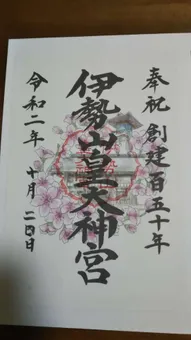 奉祝 創建百五十年
伊勢山皇大神宮
令和二年 十月 二四日